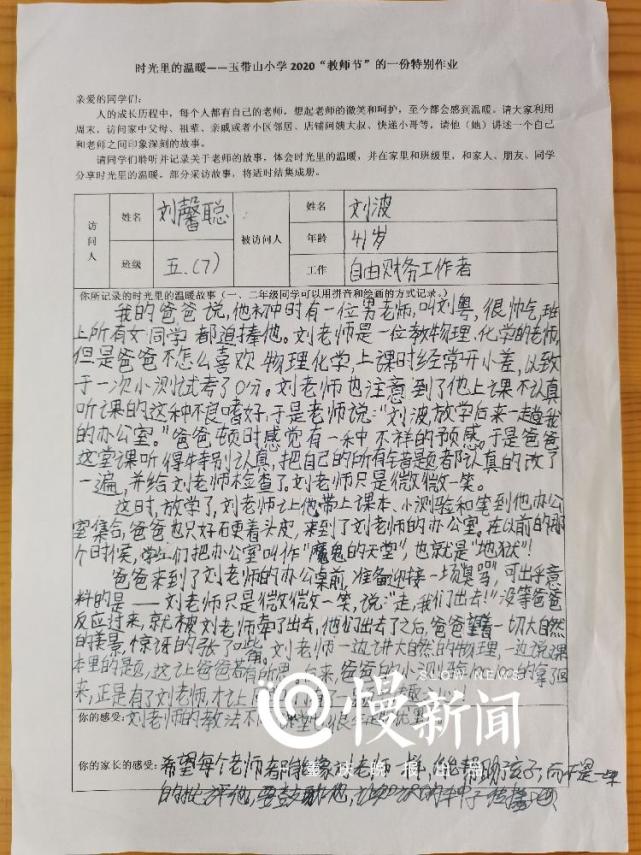 时光里的温暖——玉带山小学2020“教师节”的一份特别作业
亲爱的同学们：
人的成长历程中，每个人都有自己的老师，想起老师的微笑和呵护，至今都会感到温暖。请大家利用
周末，访问家中父母、祖辈、亲戚或者小区邻居、店铺阿姨大叔、快递小哥等，请他（她）讲述一个自己
和老师之间印象深刻的故事。
请同学们聆听并记录关于老师的故事，体会时光里的温暖，并在家里和班级里，和家人、朋友、同学
分享时光里的温暖。部分采访故事，将适时结集成册。
访问人 姓名 刘馨聪 被访问人 姓名 刘波
年龄 41岁
班级 五.(7) 工作 自由财务工作者
你所记录的时光里的温暖故事（一、二年级同学可以用拼音和绘画的方式记录。）
我的爸爸说，他初中时有一位男老师，叫刘粤，很帅气，班
上所有女同学都追捧他。刘老师是一位教物理、化学的老师，
但是爸爸不怎么喜欢物理化学，上课时经常开小差，以致
于一次小测试考了0分。刘老师也注意到了他上课不认真
听课的这种不良嗜好，于是老师说：“刘波，放学后来一趟我
的办公室。”爸爸顿时感觉有一种不祥的预感。于是爸爸
这堂课听得特别认真，把自己的所有错题都认真的改了
一遍，并给刘老师检查了。刘老师只是微微一笑。
这时，放学了，刘老师让他带上课本、小测验和笔到他办公
室集合，爸爸也只好硬着头皮，来到了刘老师的办公室。在以前的那
个时候，学生们把办公室叫作“魔鬼的天堂”，也就是“地狱”！
爸爸来到了刘老师的办公桌前，准备迎接一场臭骂，可出乎意
料的是——刘老师只是微微一笑，说：“走，我们出去！”没等爸爸
反应过来，就被刘老师牵了出去，他们出去了之后，爸爸望着一切大自然
的美景，惊讶的张了嘴。刘老师一边讲大自然的物理，一边说课
本里的是页，这让爸爸若有所思。后来，爸爸的小测验 的拿了回
来，正是有了刘老师，才让
SLOW NEWS
慢新闻
重庆晚报出品
你的感受：刘老师的教法不
你的家长的感受：希望每个老师都能像刘老师一样，能帮助孩子，而不是一味
的批评他，要鼓励他，让知识的种子